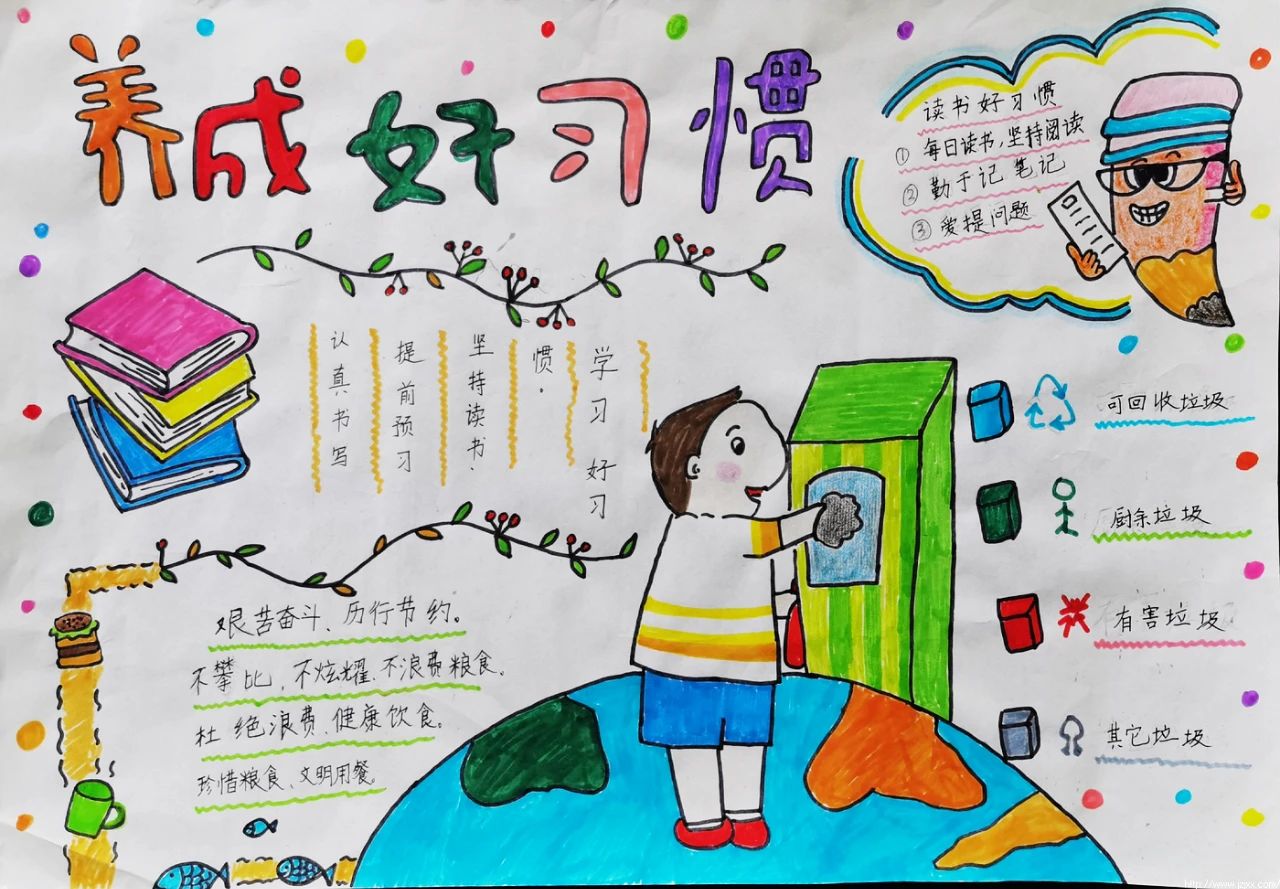 养成好习惯
读书好习惯
①每日读书,坚持阅读
②勤于记笔记
③爱提问题
学习好习
惯.
坚持读书.
提前预习
认真书写
可回收垃圾
厨余垃圾
有害垃圾
其它垃圾
艰苦奋斗、历行节约。
不攀比,不炫耀.不浪费粮食。
杜绝浪费、健康饮食。
珍惜粮食、文明用餐。